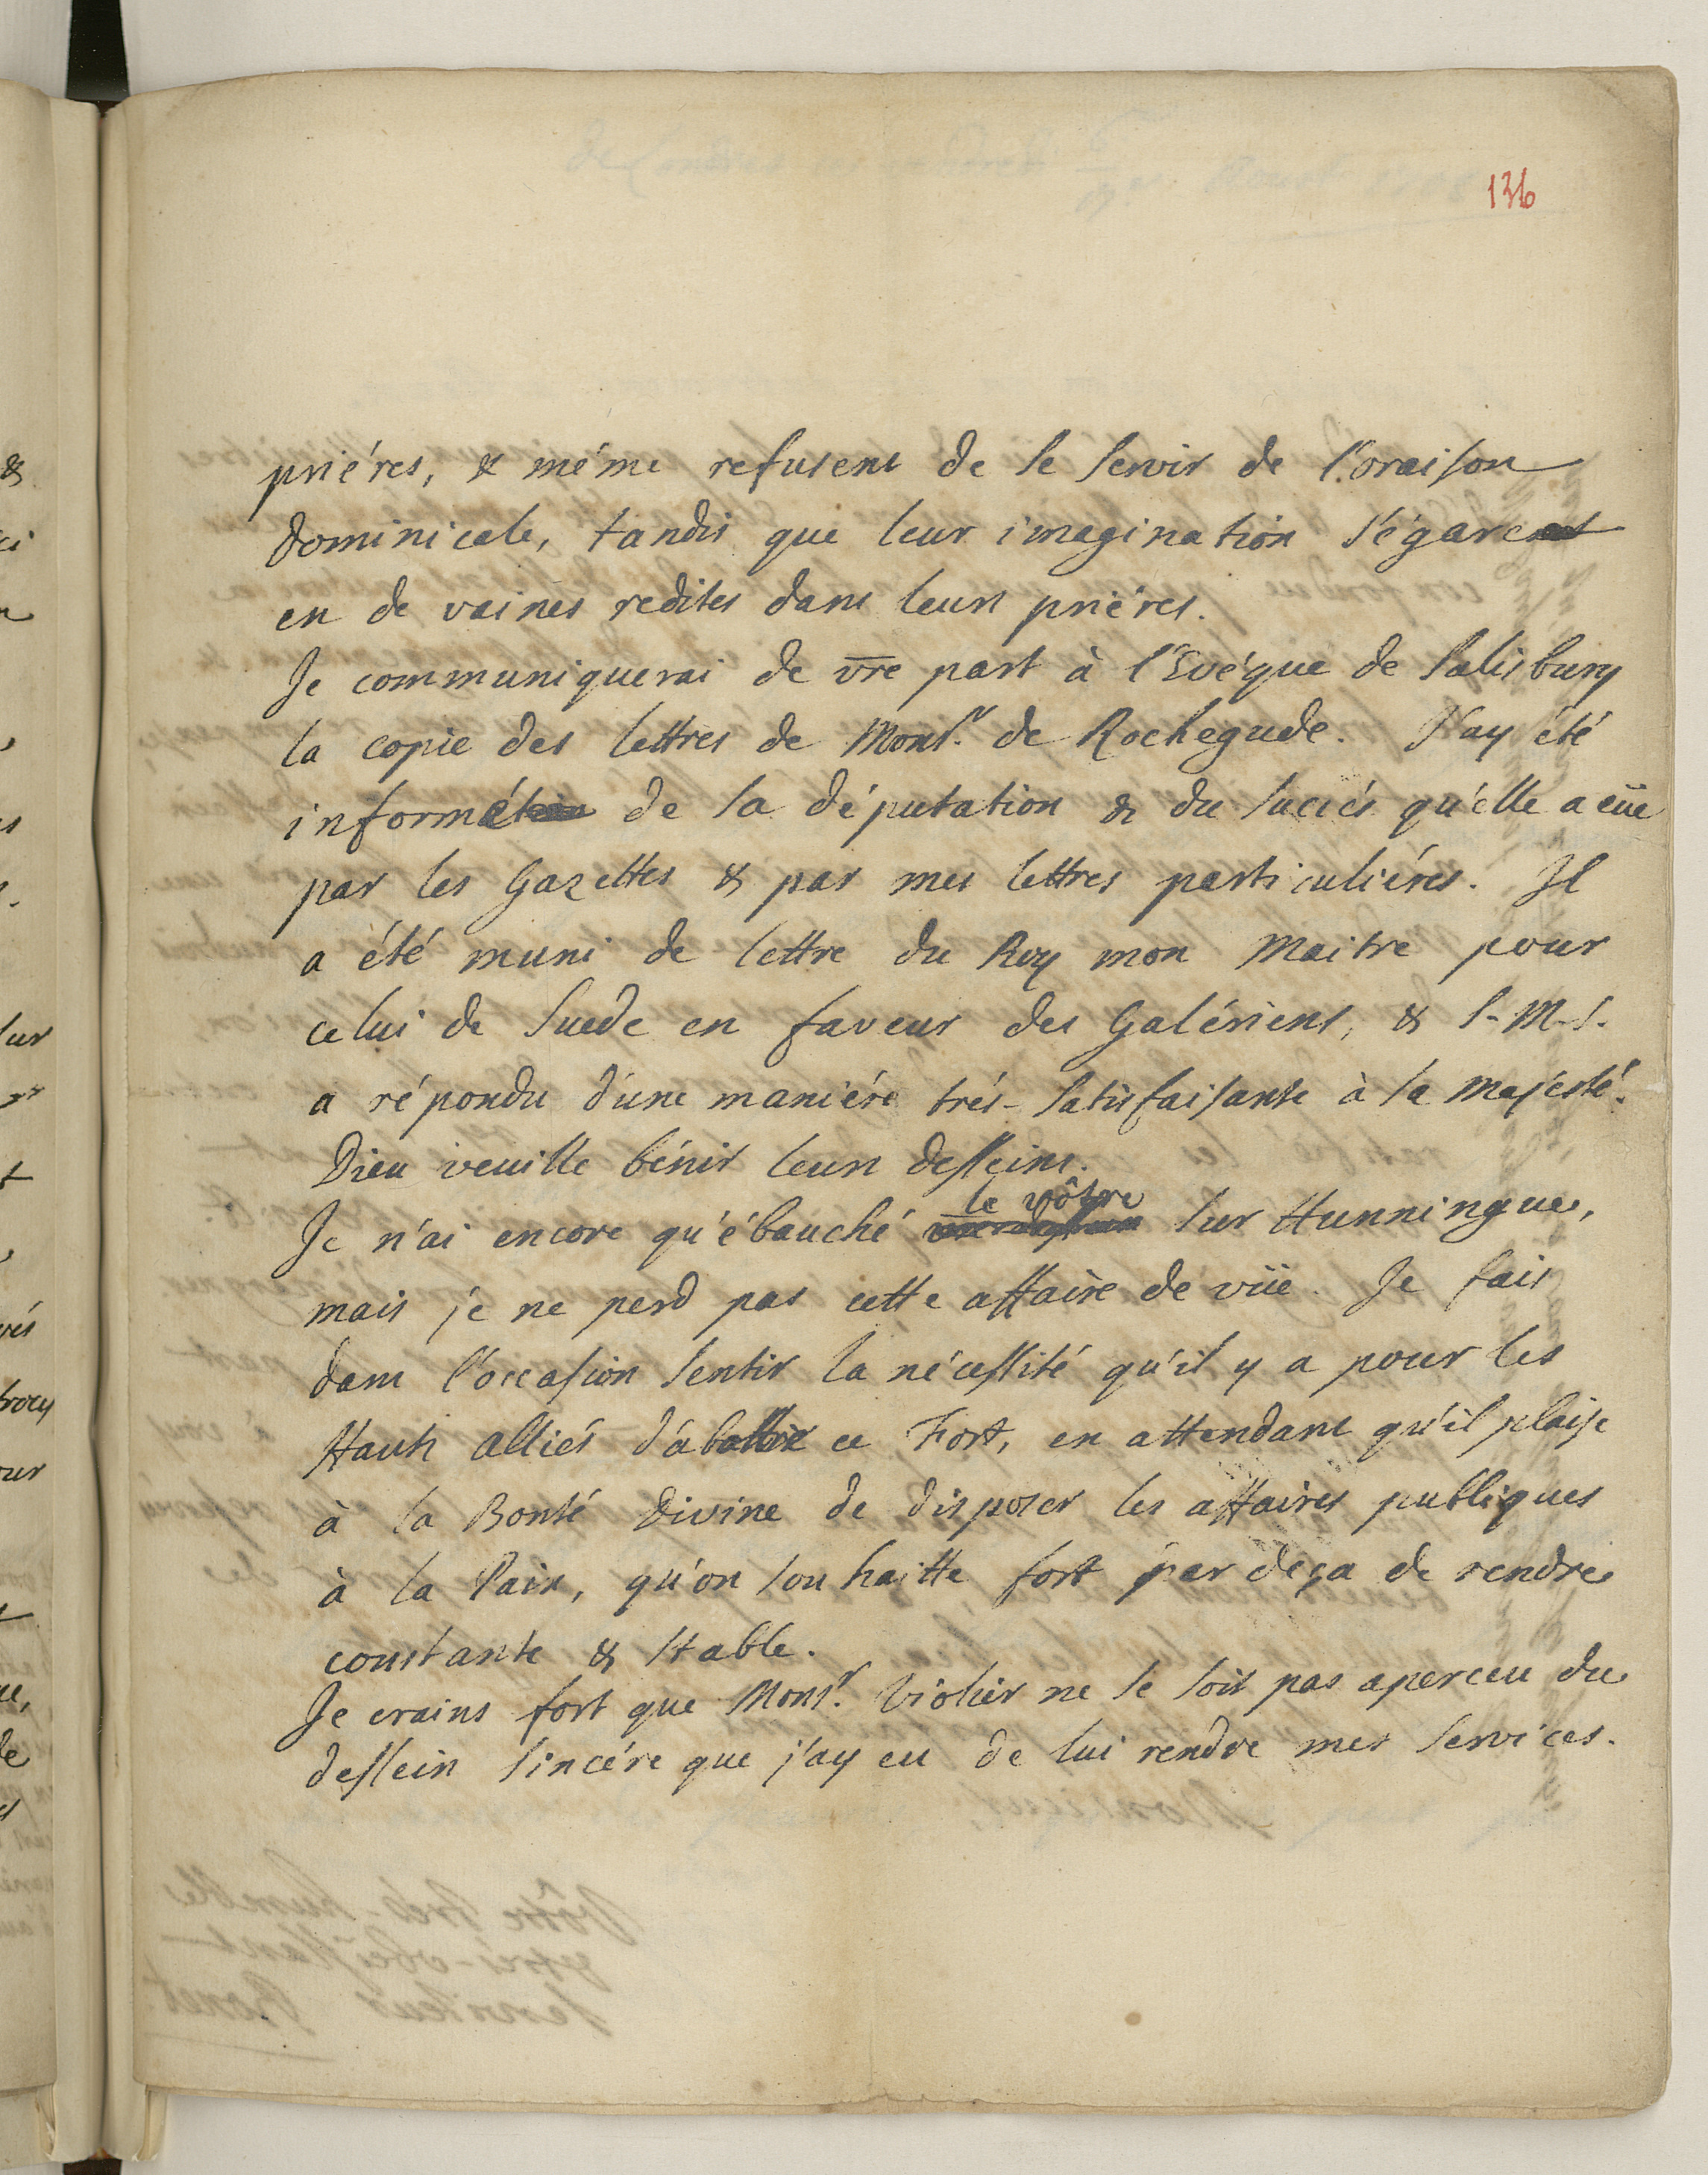 136
priéres, & méme refusent de se servir de l'oraison
dominicale, tandis que leur imagination s'égare
en de vaines redites dans leurs priéres.
Je communiquerai de vre part à l'Evéque de Salisbury
la copie des lettres de Monsr. de Rochegude. J'ay été
informé de sa députation & du succés qu'elle a eüe
par les Gazettes & par mes lettres particuliéres. Il
a été muni de lettre du Roy mon Maitre pour
celui de Suede en faveur des Galériens, & S-M-S.
a répondu d'une maniére trés-satisfaisante à sa Majesté.
Dieu veuille bénir leurs desseins.
le vôtre
Je n'ai encore qu'ébauché sur Hunningue,
mais je ne perd pas cette affaire de vüe. Je fais
dans l'occasion sentir la nécessité qu'il y a pour les
Hauts alliés d'abattre ce Fort, en attendant qu'il plaise
à la Bonté Divine de disposer les affaires publiques
à la Paix, qu'on souhaitte fort par deça de rendre
constante & stable.
Je crains fort que Monsr. Violier ne se soit pas aperceu du
dessein sincére que j'ay eu de lui rendre mes services.